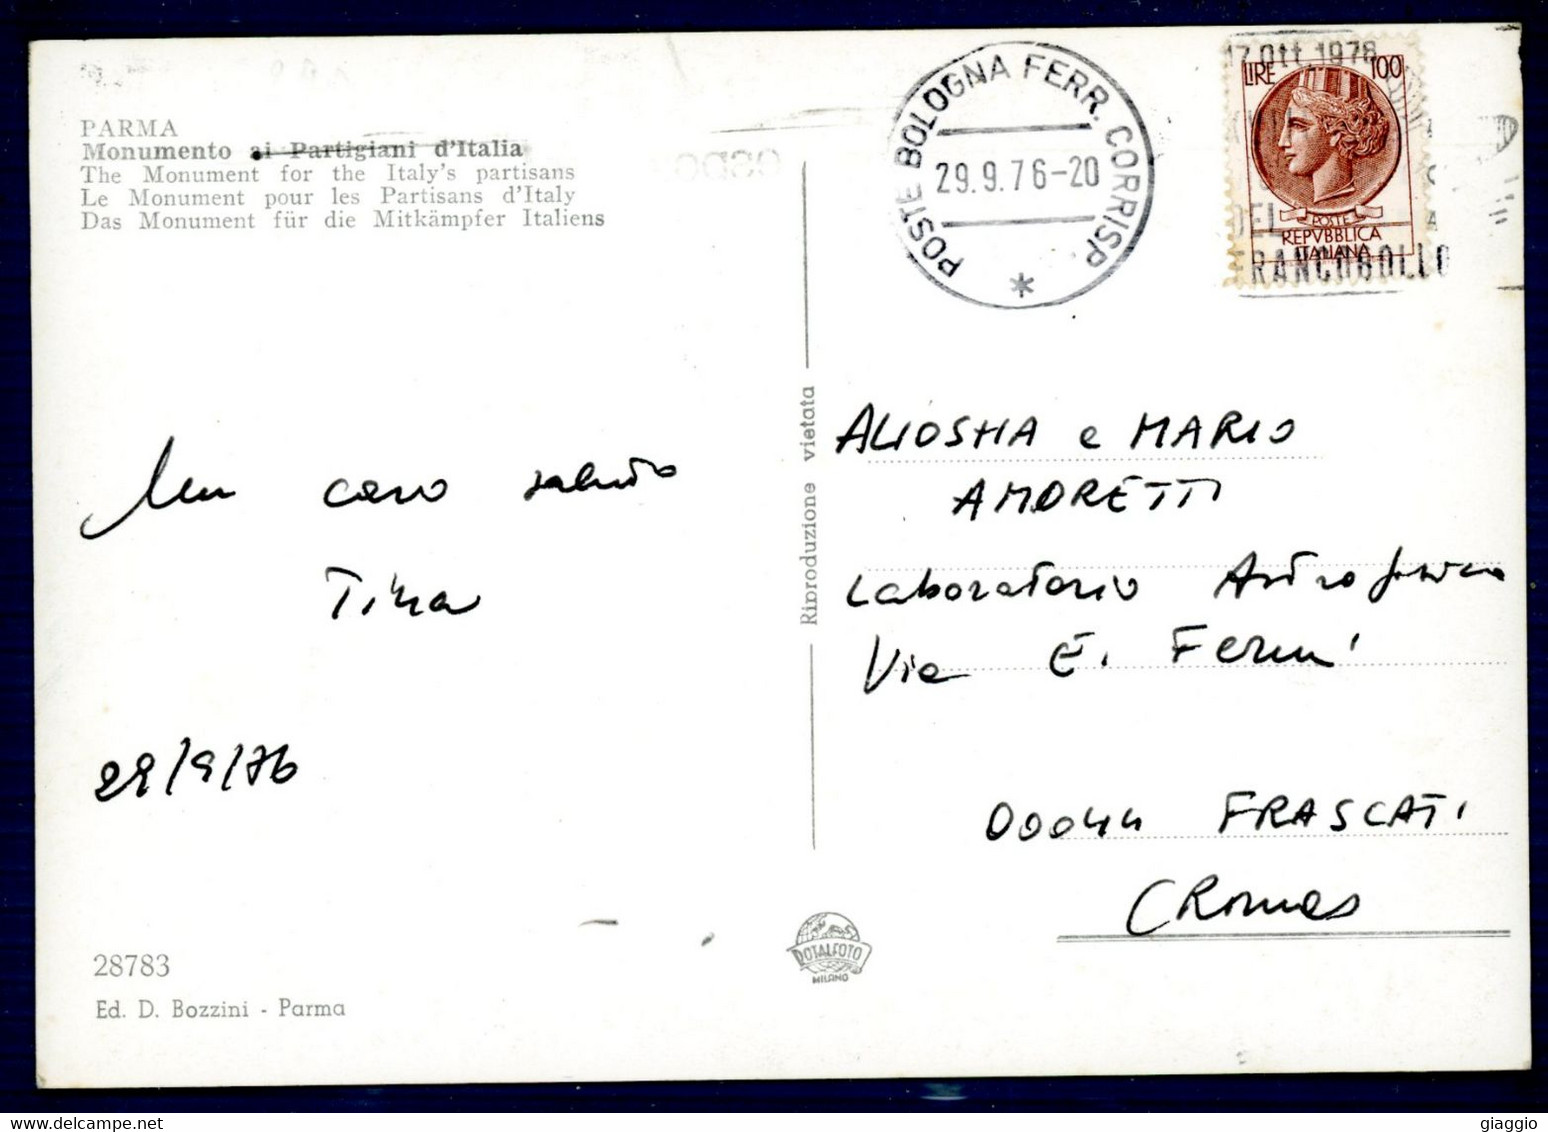 PARMA
Monumento ai Partigiani d'Italia
The Monument for the Italy's partisans
Le Monument pour les Partisans d'Italy
Das Monument für die Mitkämpfer Italiens
POSTE BOLOGNA FERR. CORRISP.
29.9.76-20
*
17 Ott. 1976
LIRE 100
POSTE
REPVBBLICA
ITALIANA
DEL
FRANCOBOLLO
Un caro saluto
Tina
29/9/76
28783
Ed. D. Bozzini - Parma
Riproduzione vietata
ROTALFOTO
MILANO
ALIOSHA e MARIO
AMORETTI
Laboratorio Astrofisico
Via E. Fermi
00044 FRASCATI
(Roma)
giaggio